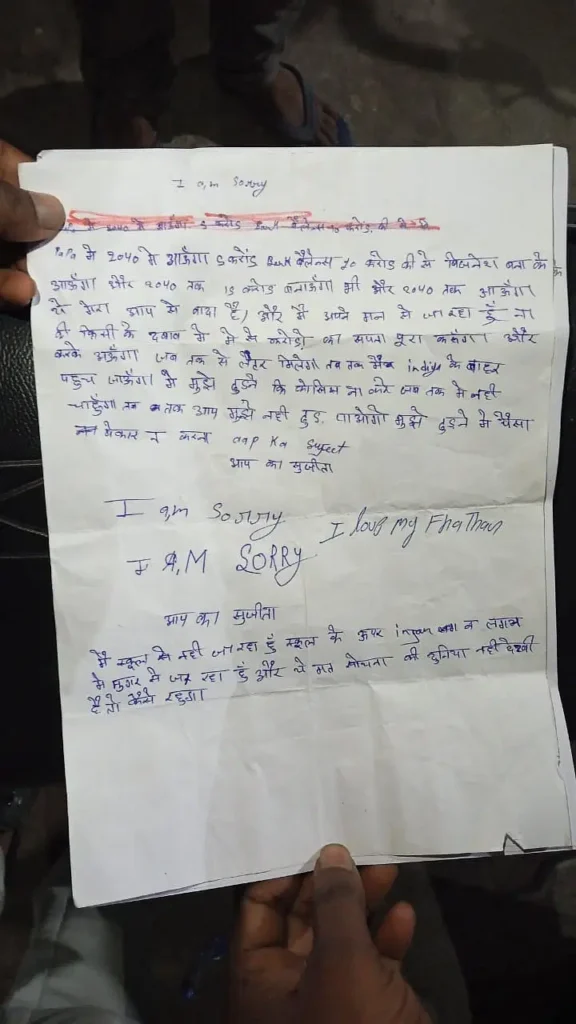 I am Sorry
मे 2040 मे आऊँगा 5 करोड़ Bank बैलेन्स 10 करोड़ की
PaPa मे 2040 मे आऊँगा 5 करोड़ Bank बैलेन्स 10 करोड़ की मे बिजनेश बना के
आऊँगा और 2040 तक 15 करोड़ बनाऊँगा भी और 2040 तक आऊँगा
ये मेरा आप से वादा है, और मै अपने मन से जा रहा हुँ ना
की किसी के दबाव मे मे मे करोड़ो का सपना पूरा करूँगा और
करके आऊँगा जब तक ये लेटर मिलेगा तब तक मैं india के बाहर
पहुच जाऊँगा मे मुझे ढुढने कि कोशिस ना करे जब तक मे नही
चाहुँगा तब तक आप मुझे नही ढुढ पाओगे मुझे ढुढने मे पैसा
बेकार न करना aap Ka Sujeet
आप का सुजीता
I am Sorry
I love my Fhathar
I A,M SORRY
आप का सुजीता
मै स्कूल से नही जा रहा हुँ स्कूल के ऊपर न लगाना
मे मुगर से जा रहा हुँ और ये मत सोचना की दुनिया नही देखी
है तो कैसे रहुगा